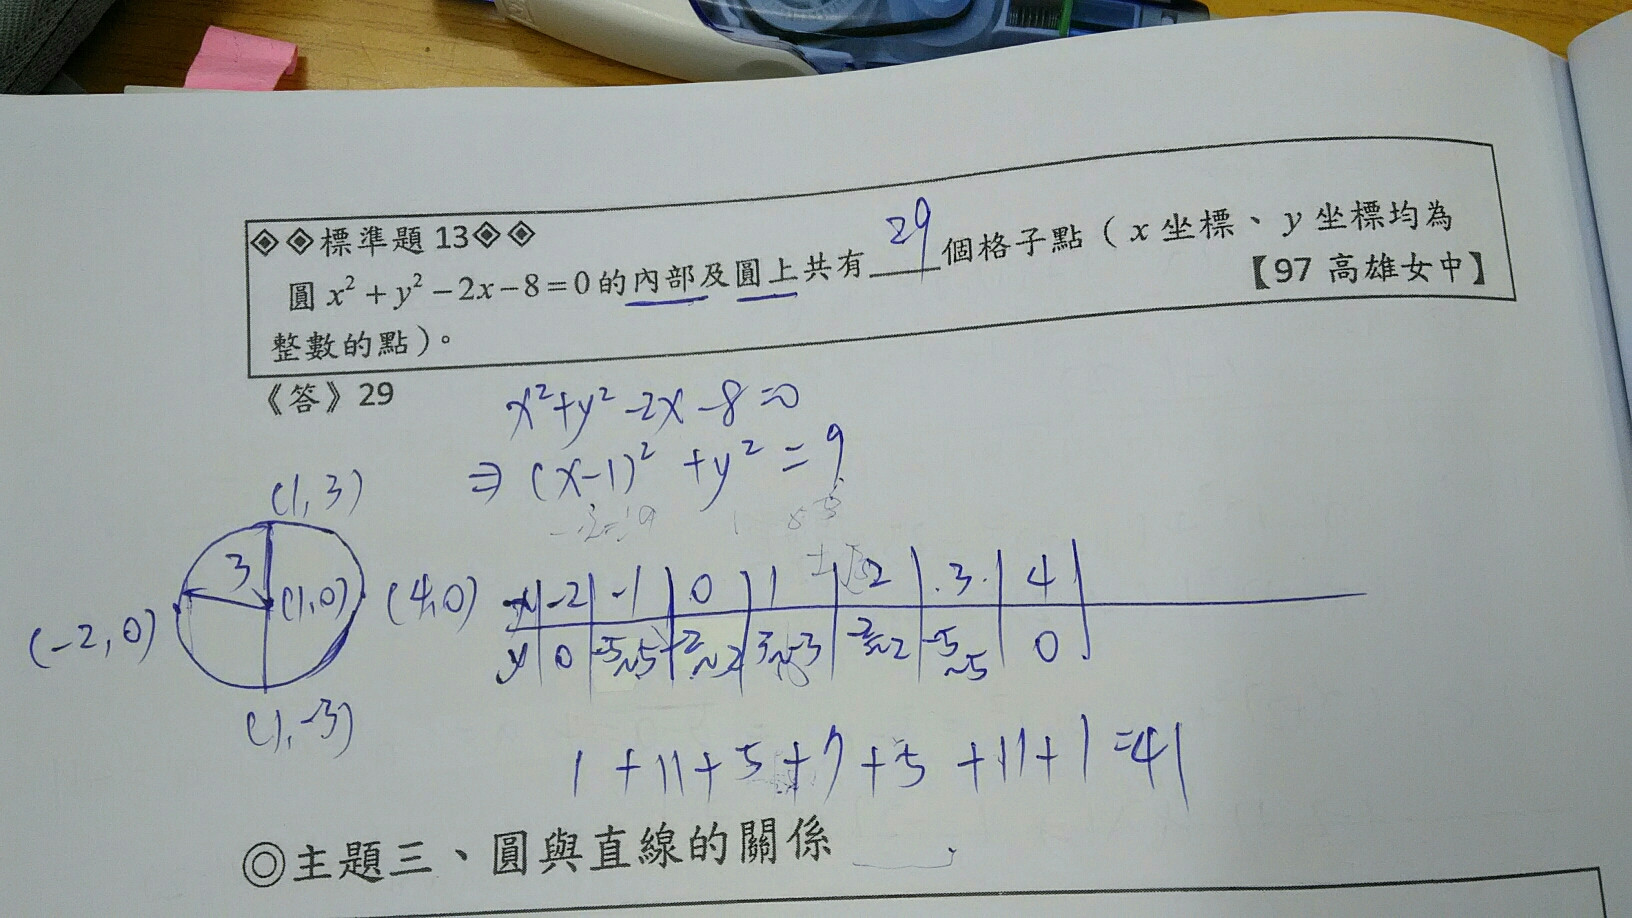 ◈◈標準題 13◈◈
圓 x²+y²−2x−8=0的內部及圓上共有 29 個格子點(x坐標、y坐標均為
整數的點)。
【97 高雄女中】
《答》29
x²+y²-2x-8=0
⇒ (x-1)²+y²=9
(1,3)
3
(1,0)
(4,0)
(-2,0)
(1,-3)
x | -2 | -1 | 0 | 1 | 2 | 3 | 4 |
y | 0 | -5~5 | -2~2 | 3~-3 | -2~2 | -5~5 | 0
1+11+5+7+5+11+1=41
◎主題三、圓與直線的關係